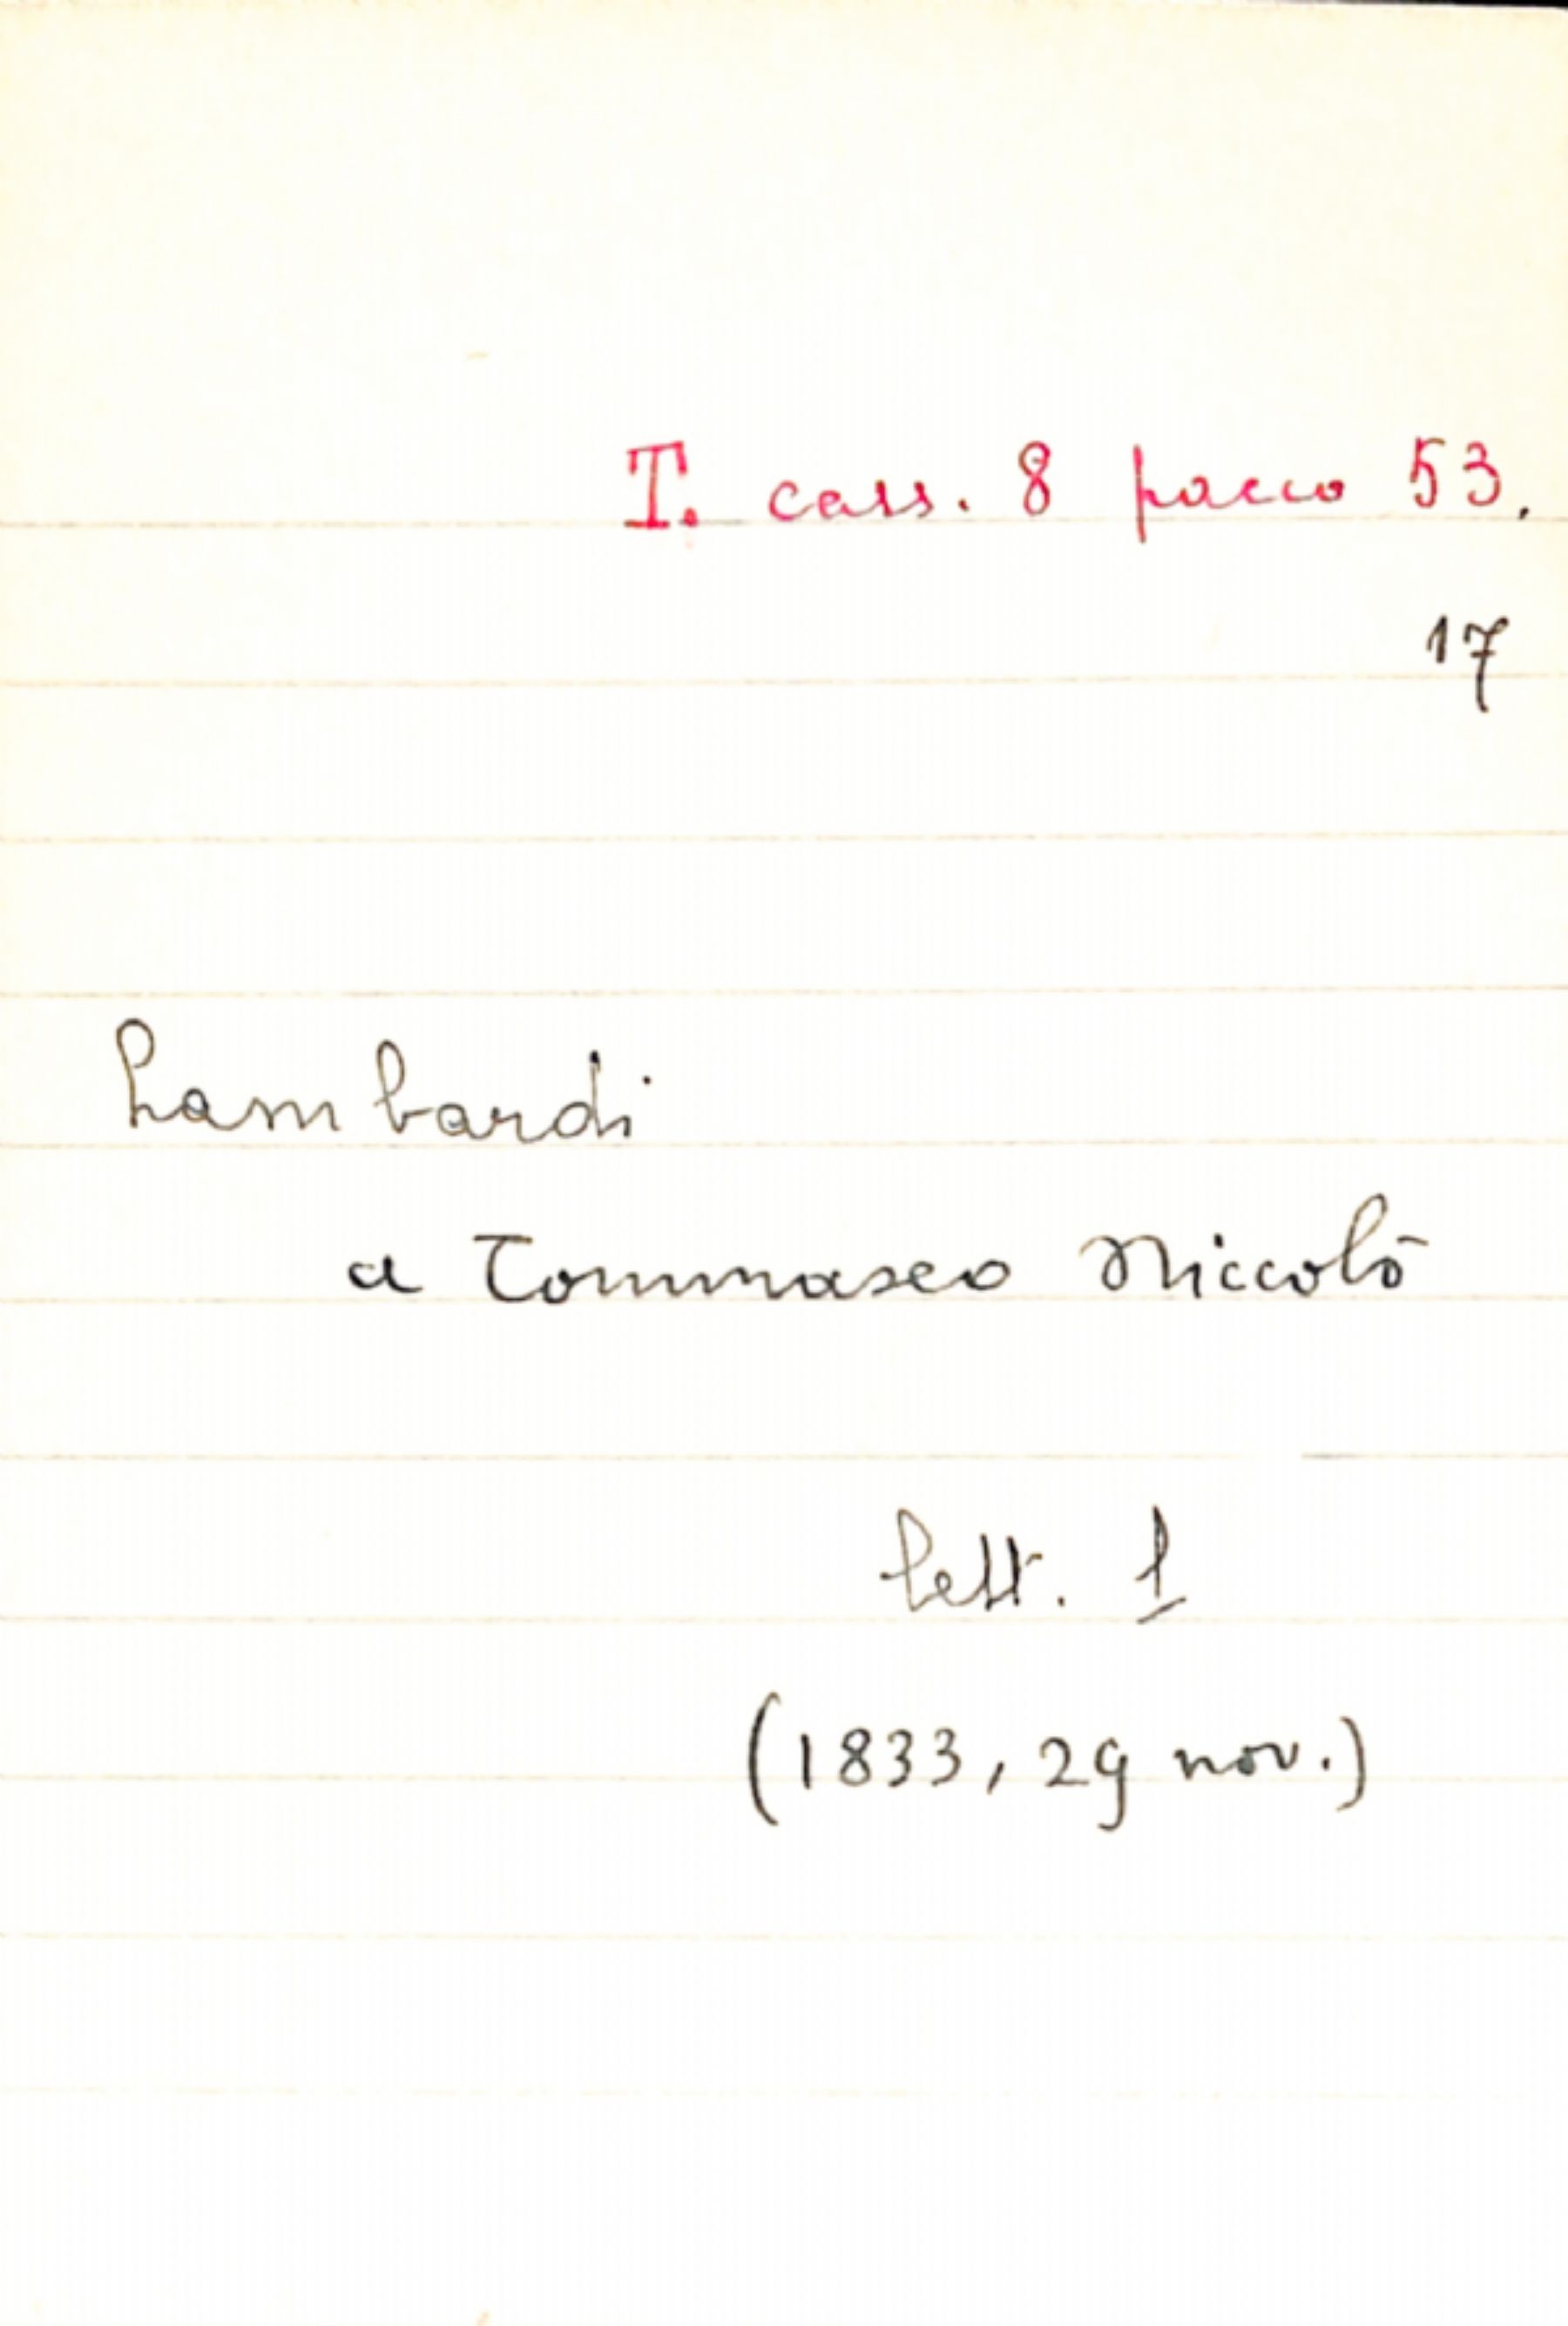 T. cass. 8 pacco 53.
17
Lambardi
a Tommaseo Niccolò
lett. 1
(1833, 29 nov.)